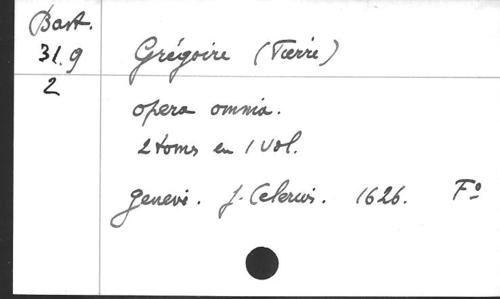 Bast.
31.9
2
Grégoire (Pierre)
opera omnia.
2 toms en 1 vol.
genevi. J. Celerius. 1626. Fº